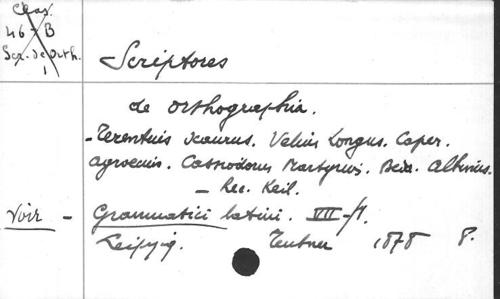 Clas.
46-B
Scr. de Orth.
1
Scriptores
de orthographia.
- Terentius Scaurus. Velius Longus. Caper.
Agroecius. Cassiodorus Martyrius. Beda. Albinus.
- Rec. Keil.
Voir - Grammatici latini. VII-f1.
Leipzig. Teubner 1878 8.